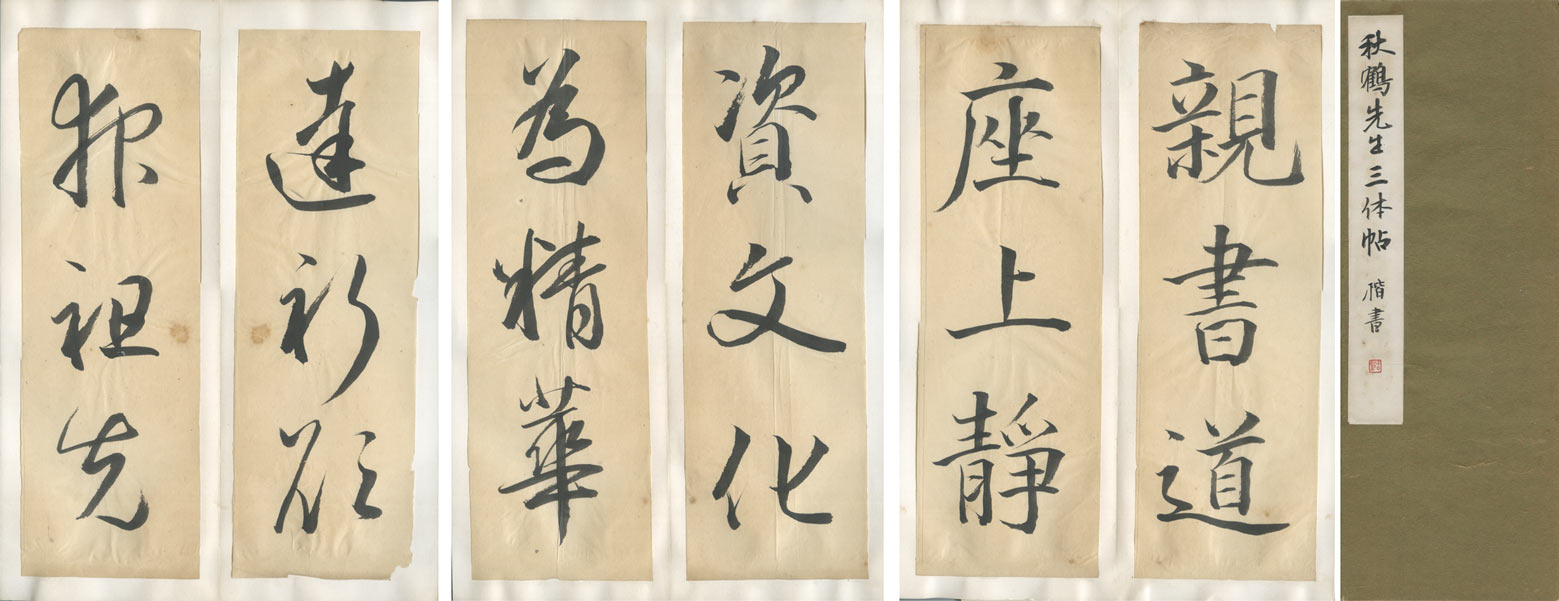 秋鶴先生三体帖 楷書
親書道
座上靜
資文化
為精華
達祈願
報祖先